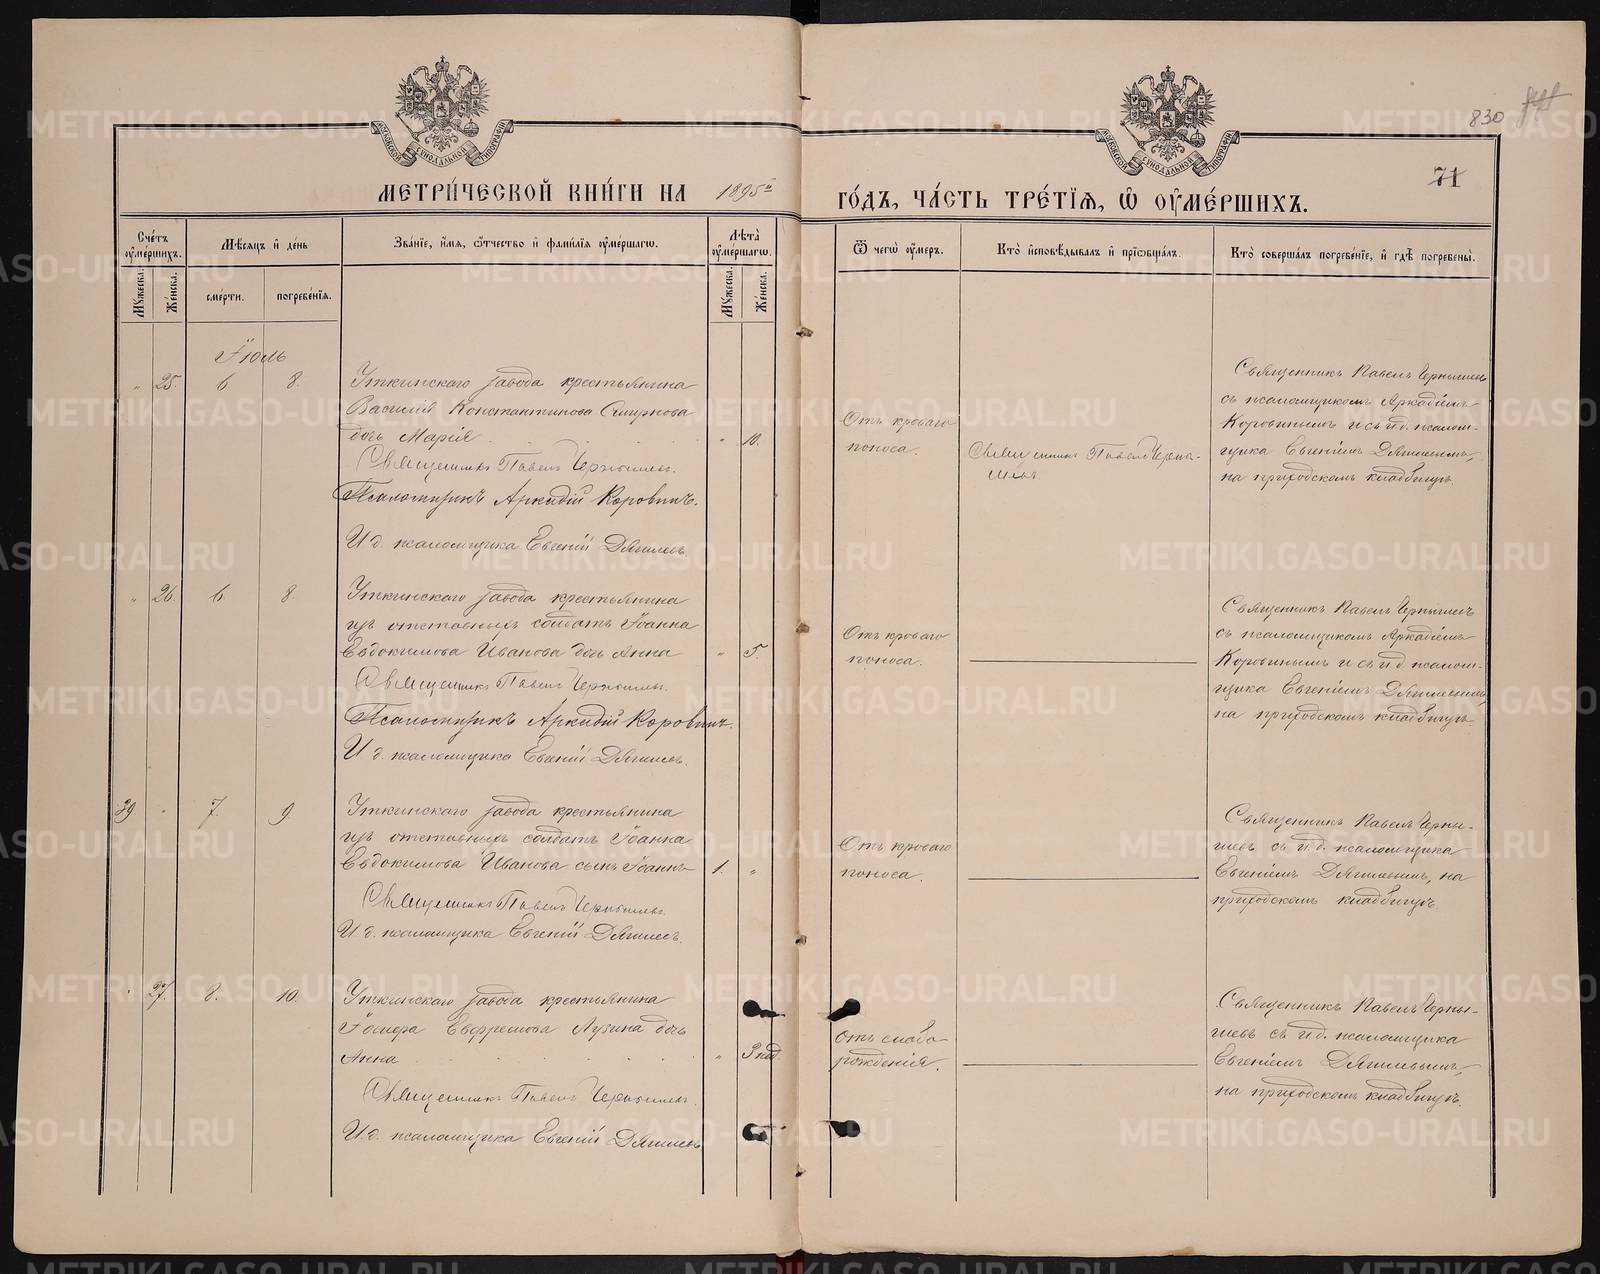 830
71
МОСКОВСКОЙ СѴНОДАЛЬНОЙ ТИПОГРАФІИ
МОСКОВСКОЙ СѴНОДАЛЬНОЙ ТИПОГРАФІИ
МЕТРИ́ЧЕСКОЙ КНИ́ГИ НА 1895й ГО́ДЪ, ЧА́СТЬ ТРЕ́ТІѦ, Ѿ ОУМЕ́РШИХЪ.
Сче́тъ оуме́ршихъ.
Мѣ́сяцъ и҆ де́нь
Зва́нїе, и҆́мѧ, ѻ҆́тчество и҆ фами́лїѧ оуме́ршагѡ.
Лѣ́та оуме́ршагѡ.
Ѿ чегѡ̀ оу́меръ.
Кто̀ и҆сповѣ́дывалъ и҆ прїѡбща́лъ.
Кто̀ соверша́лъ погребе́нїе, и҆ гдѣ̀ погребены̀.
Мꙋ́жеска.
Же́нска.
сме́рти.
погребе́нїѧ.
Мꙋ́жеска.
Же́нска.
Іюль
" 25. 6. 8. Уткинскаго завода крестьянина
Василія Константинова Смирнова
дочь Марія " 10.
Священникъ Павелъ Чернышевъ.
Псаломщикъ Аркадій Коровинъ.
И д. псаломщика Евгеній Дягилевъ.
Отъ кроваго
поноса.
Священникъ Павелъ Черны-
шевъ.
Священникъ Павелъ Чернышевъ
съ псаломщикомъ Аркадіемъ
Коровинымъ и съ и д. псалом-
щика Евгеніемъ Дягилевымъ,
на приходскомъ кладбищѣ.
" 26. 6. 8. Уткинскаго завода крестьянина
изъ отставныхъ солдатъ Іоанна
Евдокимова Иванова дочь Анна " 5.
Священникъ Павелъ Чернышевъ.
Псаломщикъ Аркадій Коровинъ.
И д. псаломщика Евгеній Дягилевъ.
Отъ кроваго
поноса.
Священникъ Павелъ Чернышевъ
съ псаломщикомъ Аркадіемъ
Коровинымъ и съ и д. псалом-
щика Евгеніемъ Дягилевымъ,
на приходскомъ кладбищѣ.
39 " 7. 9. Уткинскаго завода крестьянина
изъ отставныхъ солдатъ Іоанна
Евдокимова Иванова сынъ Іоаннъ 1. "
Священникъ Павелъ Чернышевъ.
И д. псаломщика Евгеній Дягилевъ.
Отъ кроваго
поноса.
Священникъ Павелъ Черны-
шевъ съ и д. псаломщика
Евгеніемъ Дягилевымъ, на
приходскомъ кладбищѣ.
" 27. 8. 10. Уткинскаго завода крестьянина
Евфремова Лузина дочь
Анна " 3 нед.
Священникъ Павелъ Чернышевъ.
И д. псаломщика Евгеній Дягилевъ
Отъ слабо-
рожденія.
Священникъ Павелъ Черны-
шевъ съ и д. псаломщика
Евгеніемъ Дягилевымъ,
на приходскомъ кладбищѣ.
METRIKI.GASO-URAL.RU